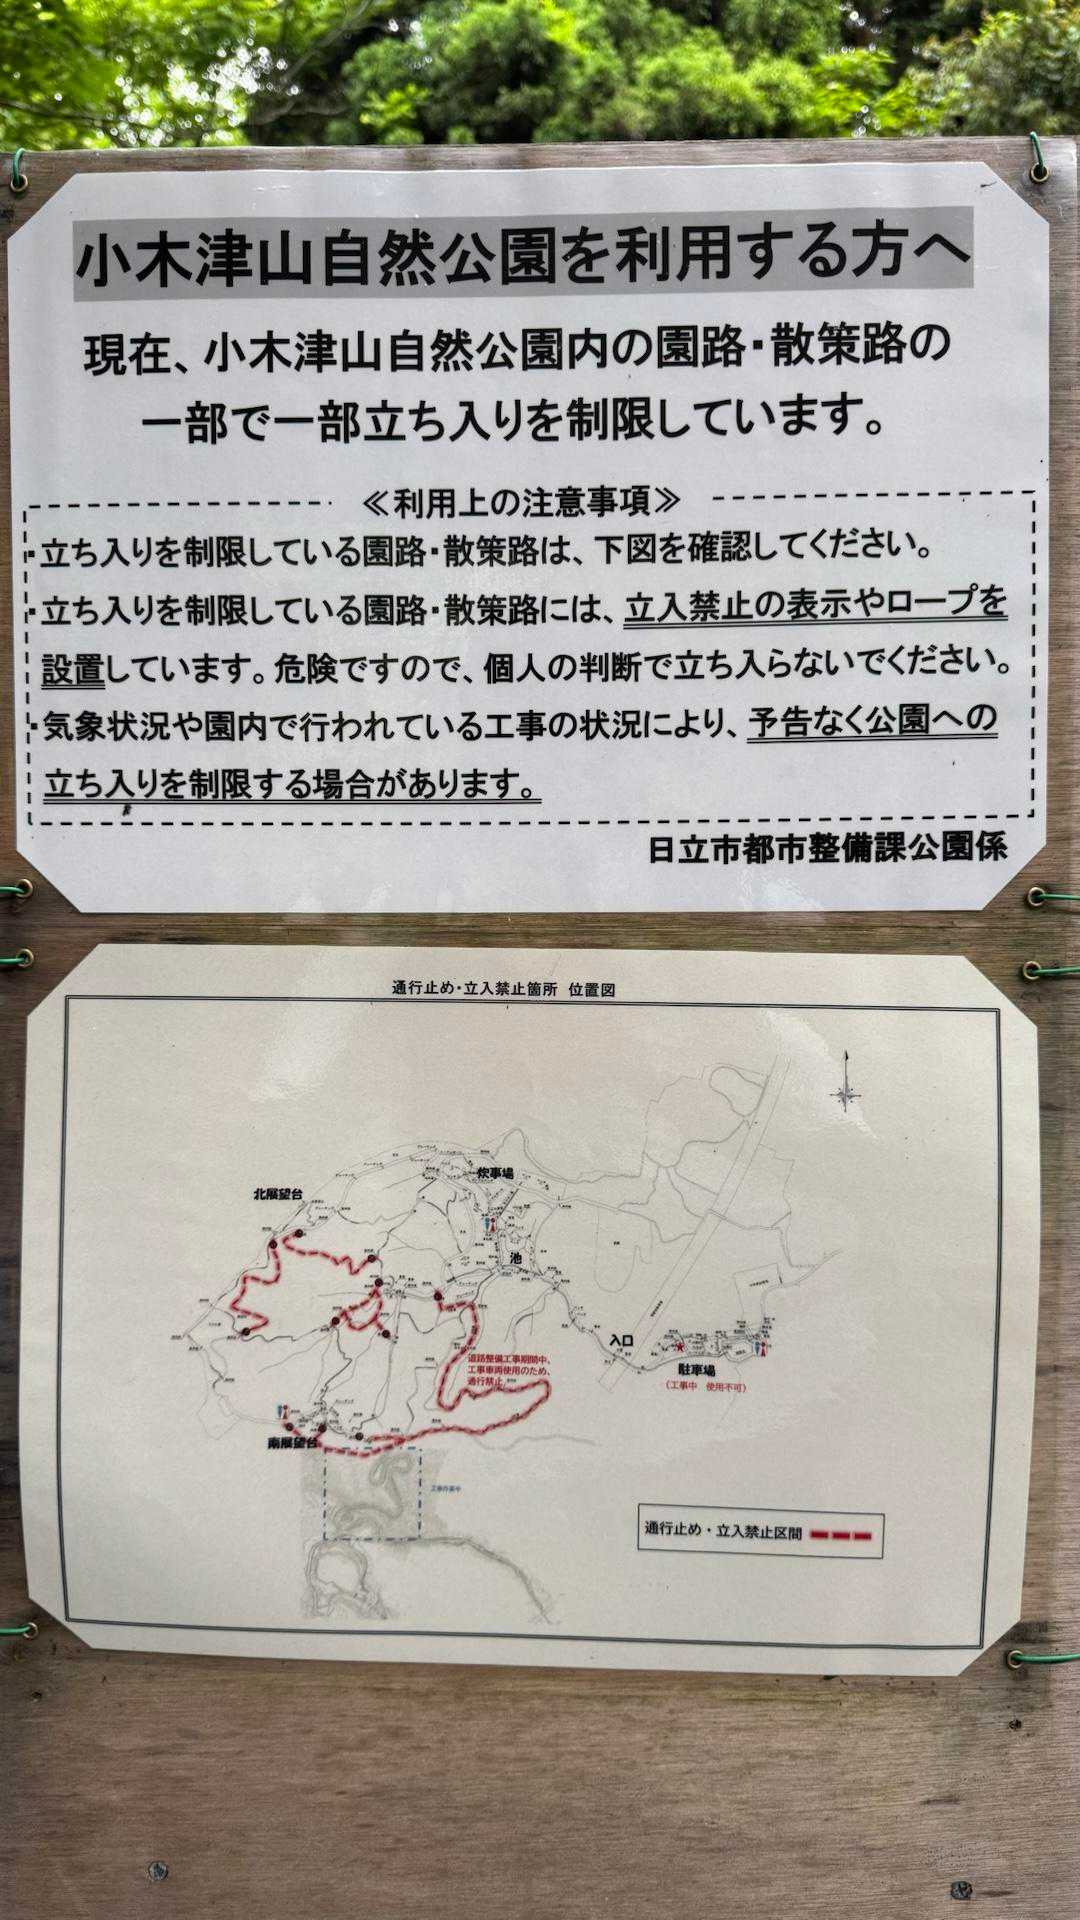 小木津山自然公園を利用する方へ
現在、小木津山自然公園内の園路・散策路の
一部で一部立ち入りを制限しています。
≪利用上の注意事項≫
・立ち入りを制限している園路・散策路は、下図を確認してください。
・立ち入りを制限している園路・散策路には、立入禁止の表示やロープを
設置しています。危険ですので、個人の判断で立ち入らないでください。
・気象状況や園内で行われている工事の状況により、予告なく公園への
立ち入りを制限する場合があります。
日立市都市整備課公園係
通行止め・立入禁止箇所 位置図
炊事場
北展望台
池
入口
駐車場
(工事中 使用不可)
道路整備工事期間中、
工事車両使用のため、
通行禁止
南展望台
通行止め・立入禁止区間